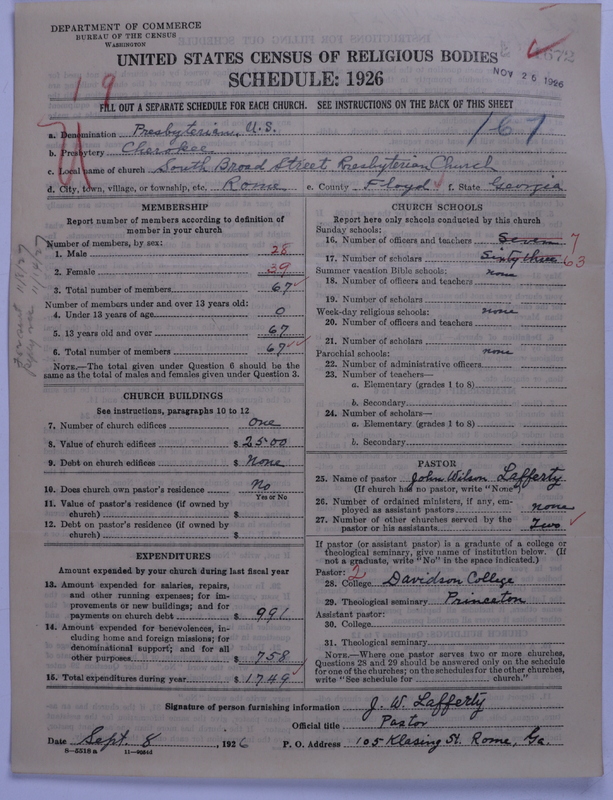 DEPARTMENT OF COMMERCE
BUREAU OF THE CENSUS
WASHINGTON
UNITED STATES CENSUS OF RELIGIOUS BODIES
SCHEDULE: 1926
NOV 26 1926
19
FILL OUT A SEPARATE SCHEDULE FOR EACH CHURCH. SEE INSTRUCTIONS ON THE BACK OF THIS SHEET
167
a. Denomination Presbyterian, U.S.
b. Presbytery Cherokee
c. Local name of church South Broad Street Presbyterian Church
d. City, town, village, or township, etc. Rome e. County Floyd f. State Georgia
MEMBERSHIP
Report number of members according to definition of
member in your church
Number of members, by sex:
1. Male 28
2. Female 39
3. Total number of members 67
Number of members under and over 13 years old:
4. Under 13 years of age 0
5. 13 years old and over 67
6. Total number of members 67
NOTE.—The total given under Question 6 should be the
same as the total of males and females given under Question 3.
CHURCH BUILDINGS
See instructions, paragraphs 10 to 12
7. Number of church edifices One
8. Value of church edifices $ 2500
9. Debt on church edifices $ None
10. Does church own pastor's residence No
Yes or No
11. Value of pastor's residence (if owned by
church) $
12. Debt on pastor's residence (if owned by
church) $
EXPENDITURES
Amount expended by your church during last fiscal year
13. Amount expended for salaries, repairs,
and other running expenses; for im-
provements or new buildings; and for
payments on church debt $ 991
14. Amount expended for benevolences, in-
cluding home and foreign missions; for
denominational support; and for all
other purposes $ 758
15. Total expenditures during year $ 1749
CHURCH SCHOOLS
Report here only schools conducted by this church
Sunday schools:
16. Number of officers and teachers Seven 7
17. Number of scholars Sixty three 63
Summer vacation Bible schools: none
18. Number of officers and teachers
19. Number of scholars
Week-day religious schools: none
20. Number of officers and teachers
21. Number of scholars
Parochial schools: none
22. Number of administrative officers
23. Number of teachers—
a. Elementary (grades 1 to 8)
b. Secondary
24. Number of scholars—
a. Elementary (grades 1 to 8)
b. Secondary
PASTOR
25. Name of pastor John Wilson Lafferty
(If church has no pastor, write "None")
26. Number of ordained ministers, if any, em-
ployed as assistant pastors none
27. Number of other churches served by the
pastor or his assistants Two
If pastor (or assistant pastor) is a graduate of a college or
theological seminary, give name of institution below. (If
not a graduate, write "No" in the space indicated.)
Pastor: 2
28. College Davidson College
29. Theological seminary Princeton
Assistant pastor:
30. College
31. Theological seminary
NOTE.—Where one pastor serves two or more churches,
Questions 28 and 29 should be answered only on the schedule
for one of the churches; on the schedules for the other churches,
write "See schedule for church."
Signature of person furnishing information J. W. Lafferty
Official title Pastor
Date Sept 8, 1926 P. O. Address 105 Klasing St. Rome, Ga.
8—5518 a